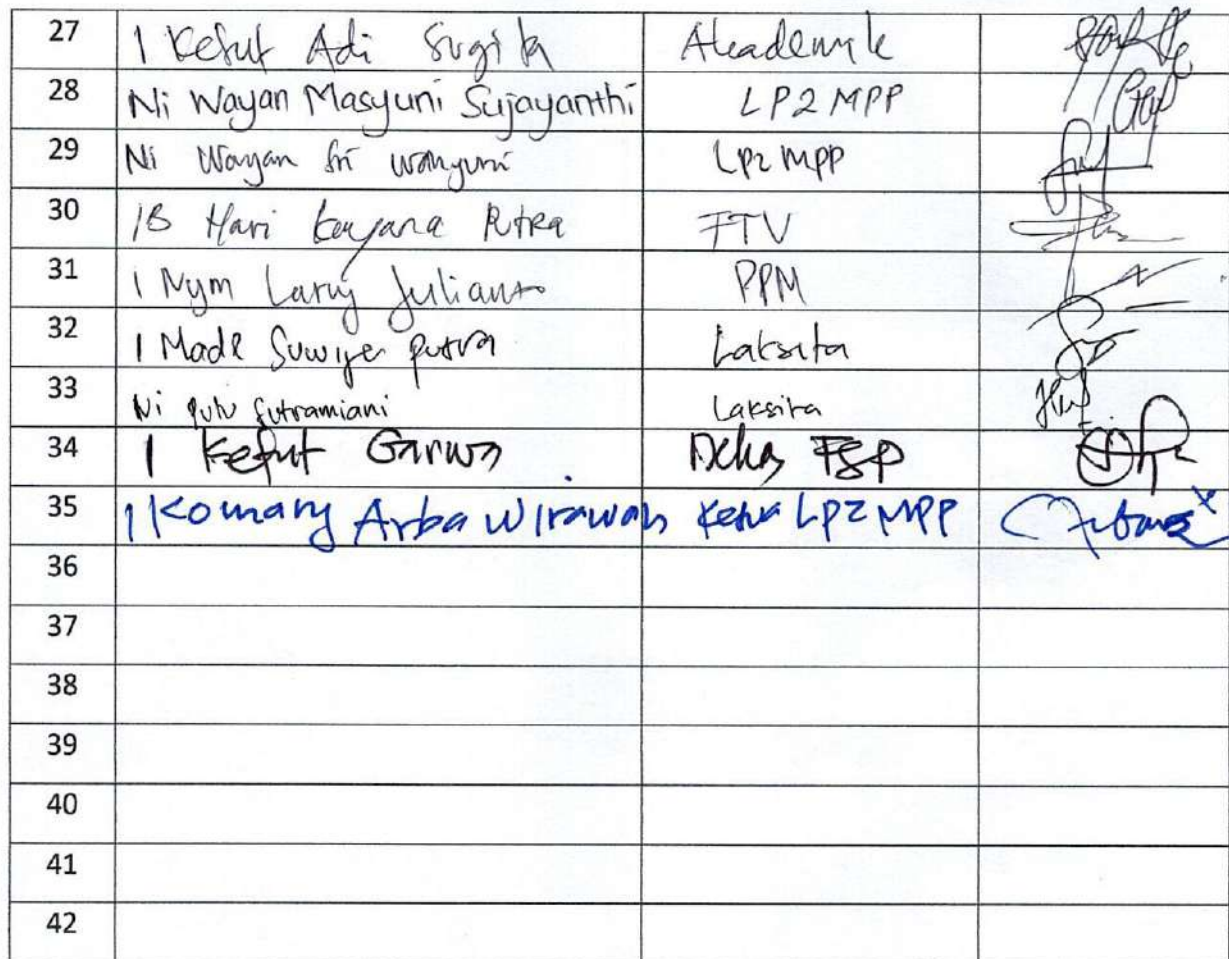 27 I Ketut Adi Sugita Akademik
28 Ni Wayan Masyuni Sujayanthi LP2MPP
29 Ni Wayan Sri Wahyuni LP2MPP
30 IB Hari Kayana Putra FTV
31 I Nym Larry Julianto PPM
32 I Made Putra Laksita
33 Ni Putu Sutramiani Laksita
34 I Ketut Garwa FSP
35 I Komang Arba Wirawan Ketua LP2MPP
36
37
38
39
40
41
42